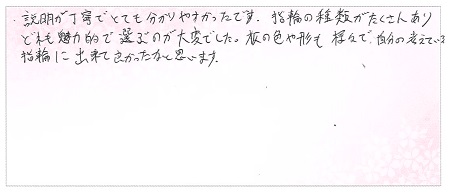 ・説明が丁寧でとても分かりやすかったです。指輪の種類がたくさんあり
どれも魅力的で選ぶのが大変でした。板の色や形も様々で、自分の考えている
指輪に出来て良かったなと思います。